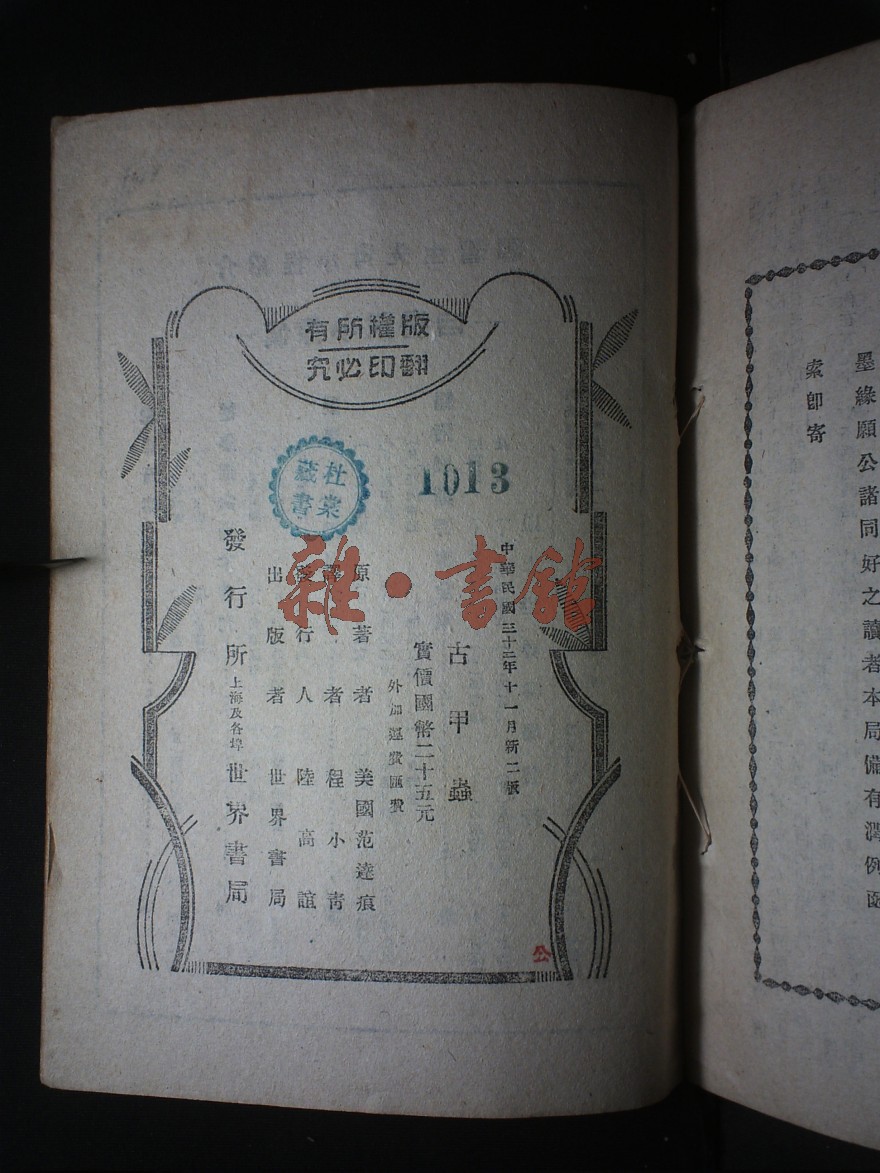 墨緣願公諸同好之讀者本局備有潤例函
索即寄
版權所有
翻印必究
1013
杜棠
藏書
中華民國三十二年十一月新二版
古甲蟲
實價國幣二十五元
外加運費匯費
原著者 美國范達痕
譯者 程小青
發行人 陸高誼
出版者 世界書局
發行所 上海及各埠 世界書局
公
雜·書館